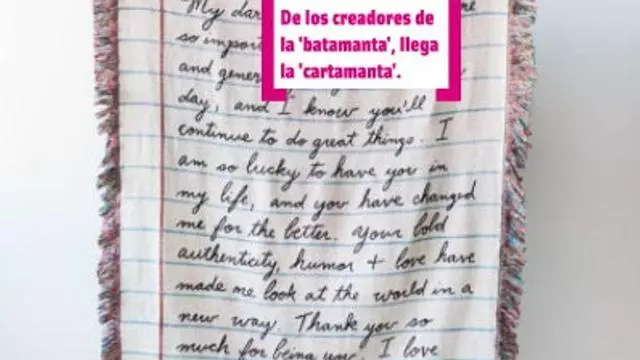 De los creadores de
la 'batamanta', llega
la 'cartamanta'.
My
so
and
day, and I know you'll
continue to do great things. I
am so lucky to have you in
my life, and you have changed
me for the better. Your bold
authenticity, humor + love have
made me look at the world in a
new way. Thank you so
much for being you. I love